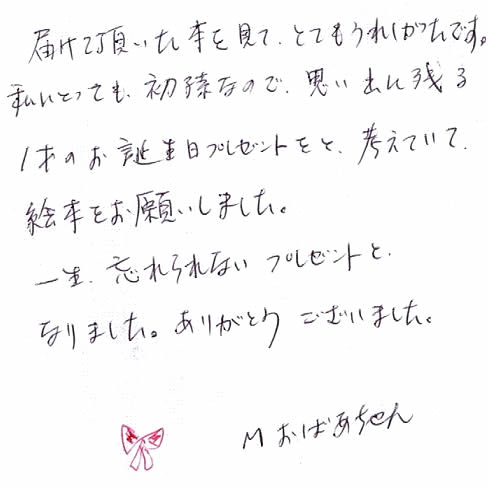 届けて頂いた本を見て、とてもうれしかったです。
私にとっても、初孫なので、思い出に残る
1才のお誕生日プレゼントをと、考えていて、
絵本をお願いしました。
一生、忘れられない プレゼントと、
なりました。ありがとう ございました。
M おばあちゃん